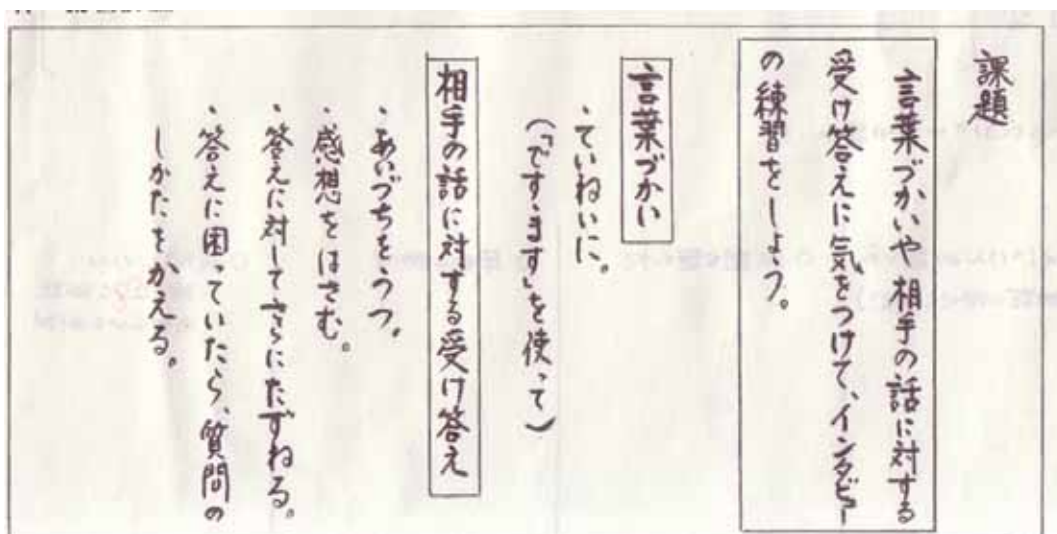 課題
言葉づかいや相手の話に対する
受け答えに気をつけて、インタビュー
の練習をしょう。
言葉づかい
・ていねいに。
(「です・ます」を使って)
相手の話に対する受け答え
・あいづちをうつ。
・感想をはさむ。
・答えに対してさらにたずねる。
・答えに困っていたら、質問の
しかたをかえる。